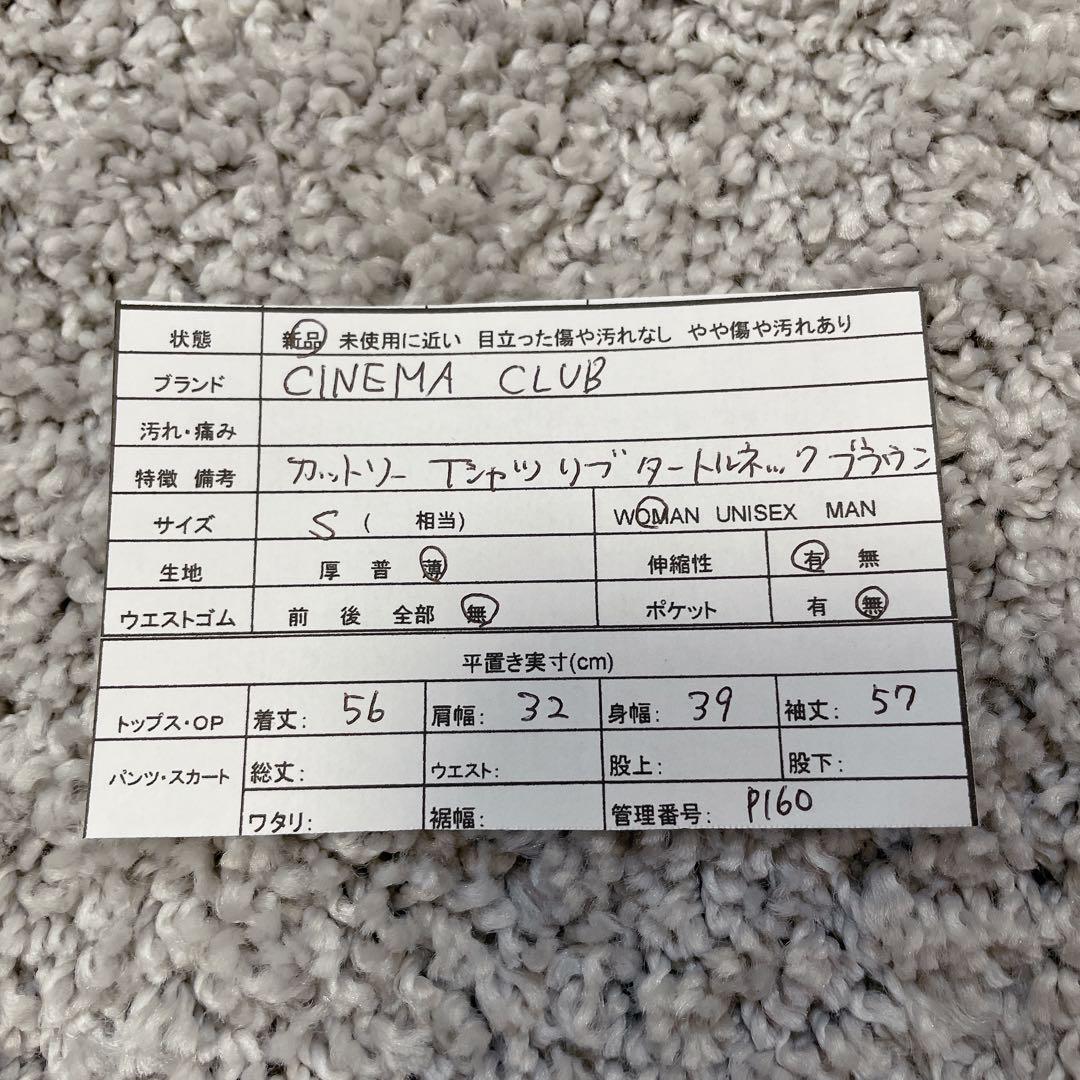 状態 新品 未使用に近い 目立った傷や汚れなし やや傷や汚れあり
ブランド CINEMA CLUB
汚れ・痛み
特徴 備考 カットソー Tシャツ リブ タートルネック ブラウン
サイズ S ( 相当) WOMAN UNISEX MAN
生地 厚 普 薄 伸縮性 有 無
ウエストゴム 前 後 全部 無 ポケット 有 無
平置き実寸(cm)
トップス・OP 着丈: 56 肩幅: 32 身幅: 39 袖丈: 57
パンツ・スカート 総丈: ウエスト: 股上: 股下:
ワタリ: 裾幅: 管理番号: P160